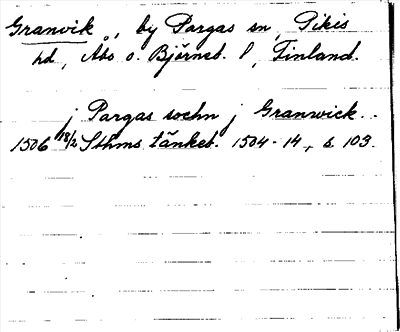 Granvik, by Pargas sn, Pikis
hd, Åbo o. Björneb. l, Finland.
j Pargas sochn j Granwick..
1506 18/2 Sthms tänkeb. 1504-14, s 103.